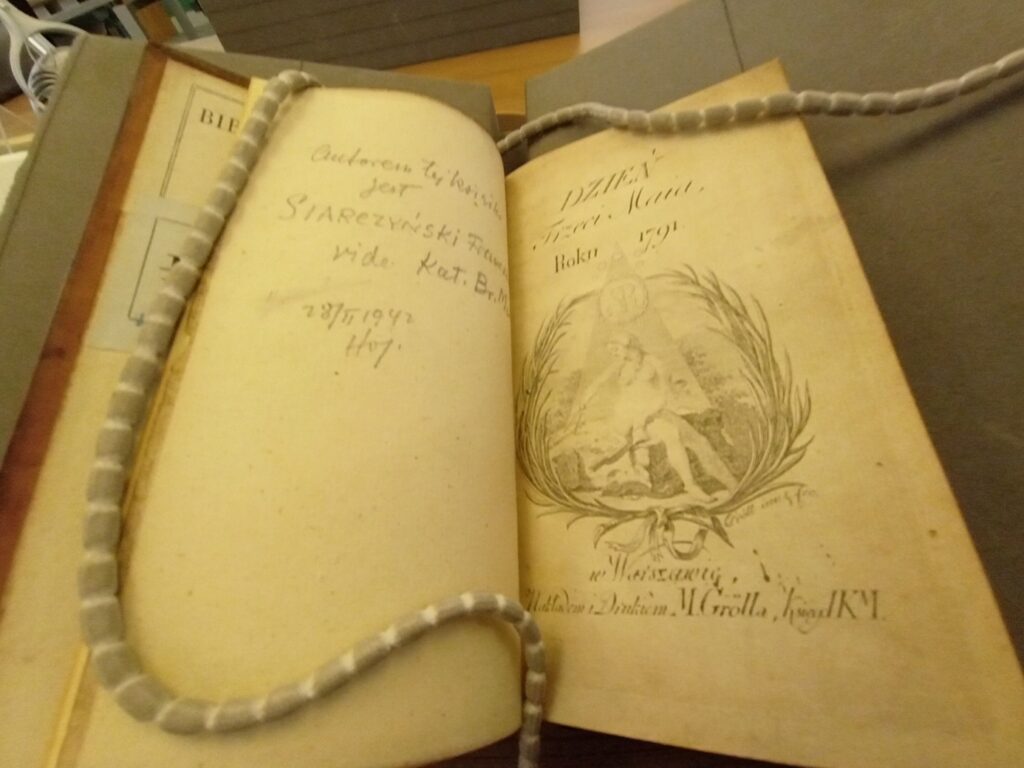 BIE
autorem tej książki
jest
SIARCZYŃSKI
vide Kat. Br. M
28/II 1942
DZIEŃ
Trzeci Maia,
Roku 1791.
w Warszawie,
Nakładem i Drukiem M. Grölla, Księg. JKM.